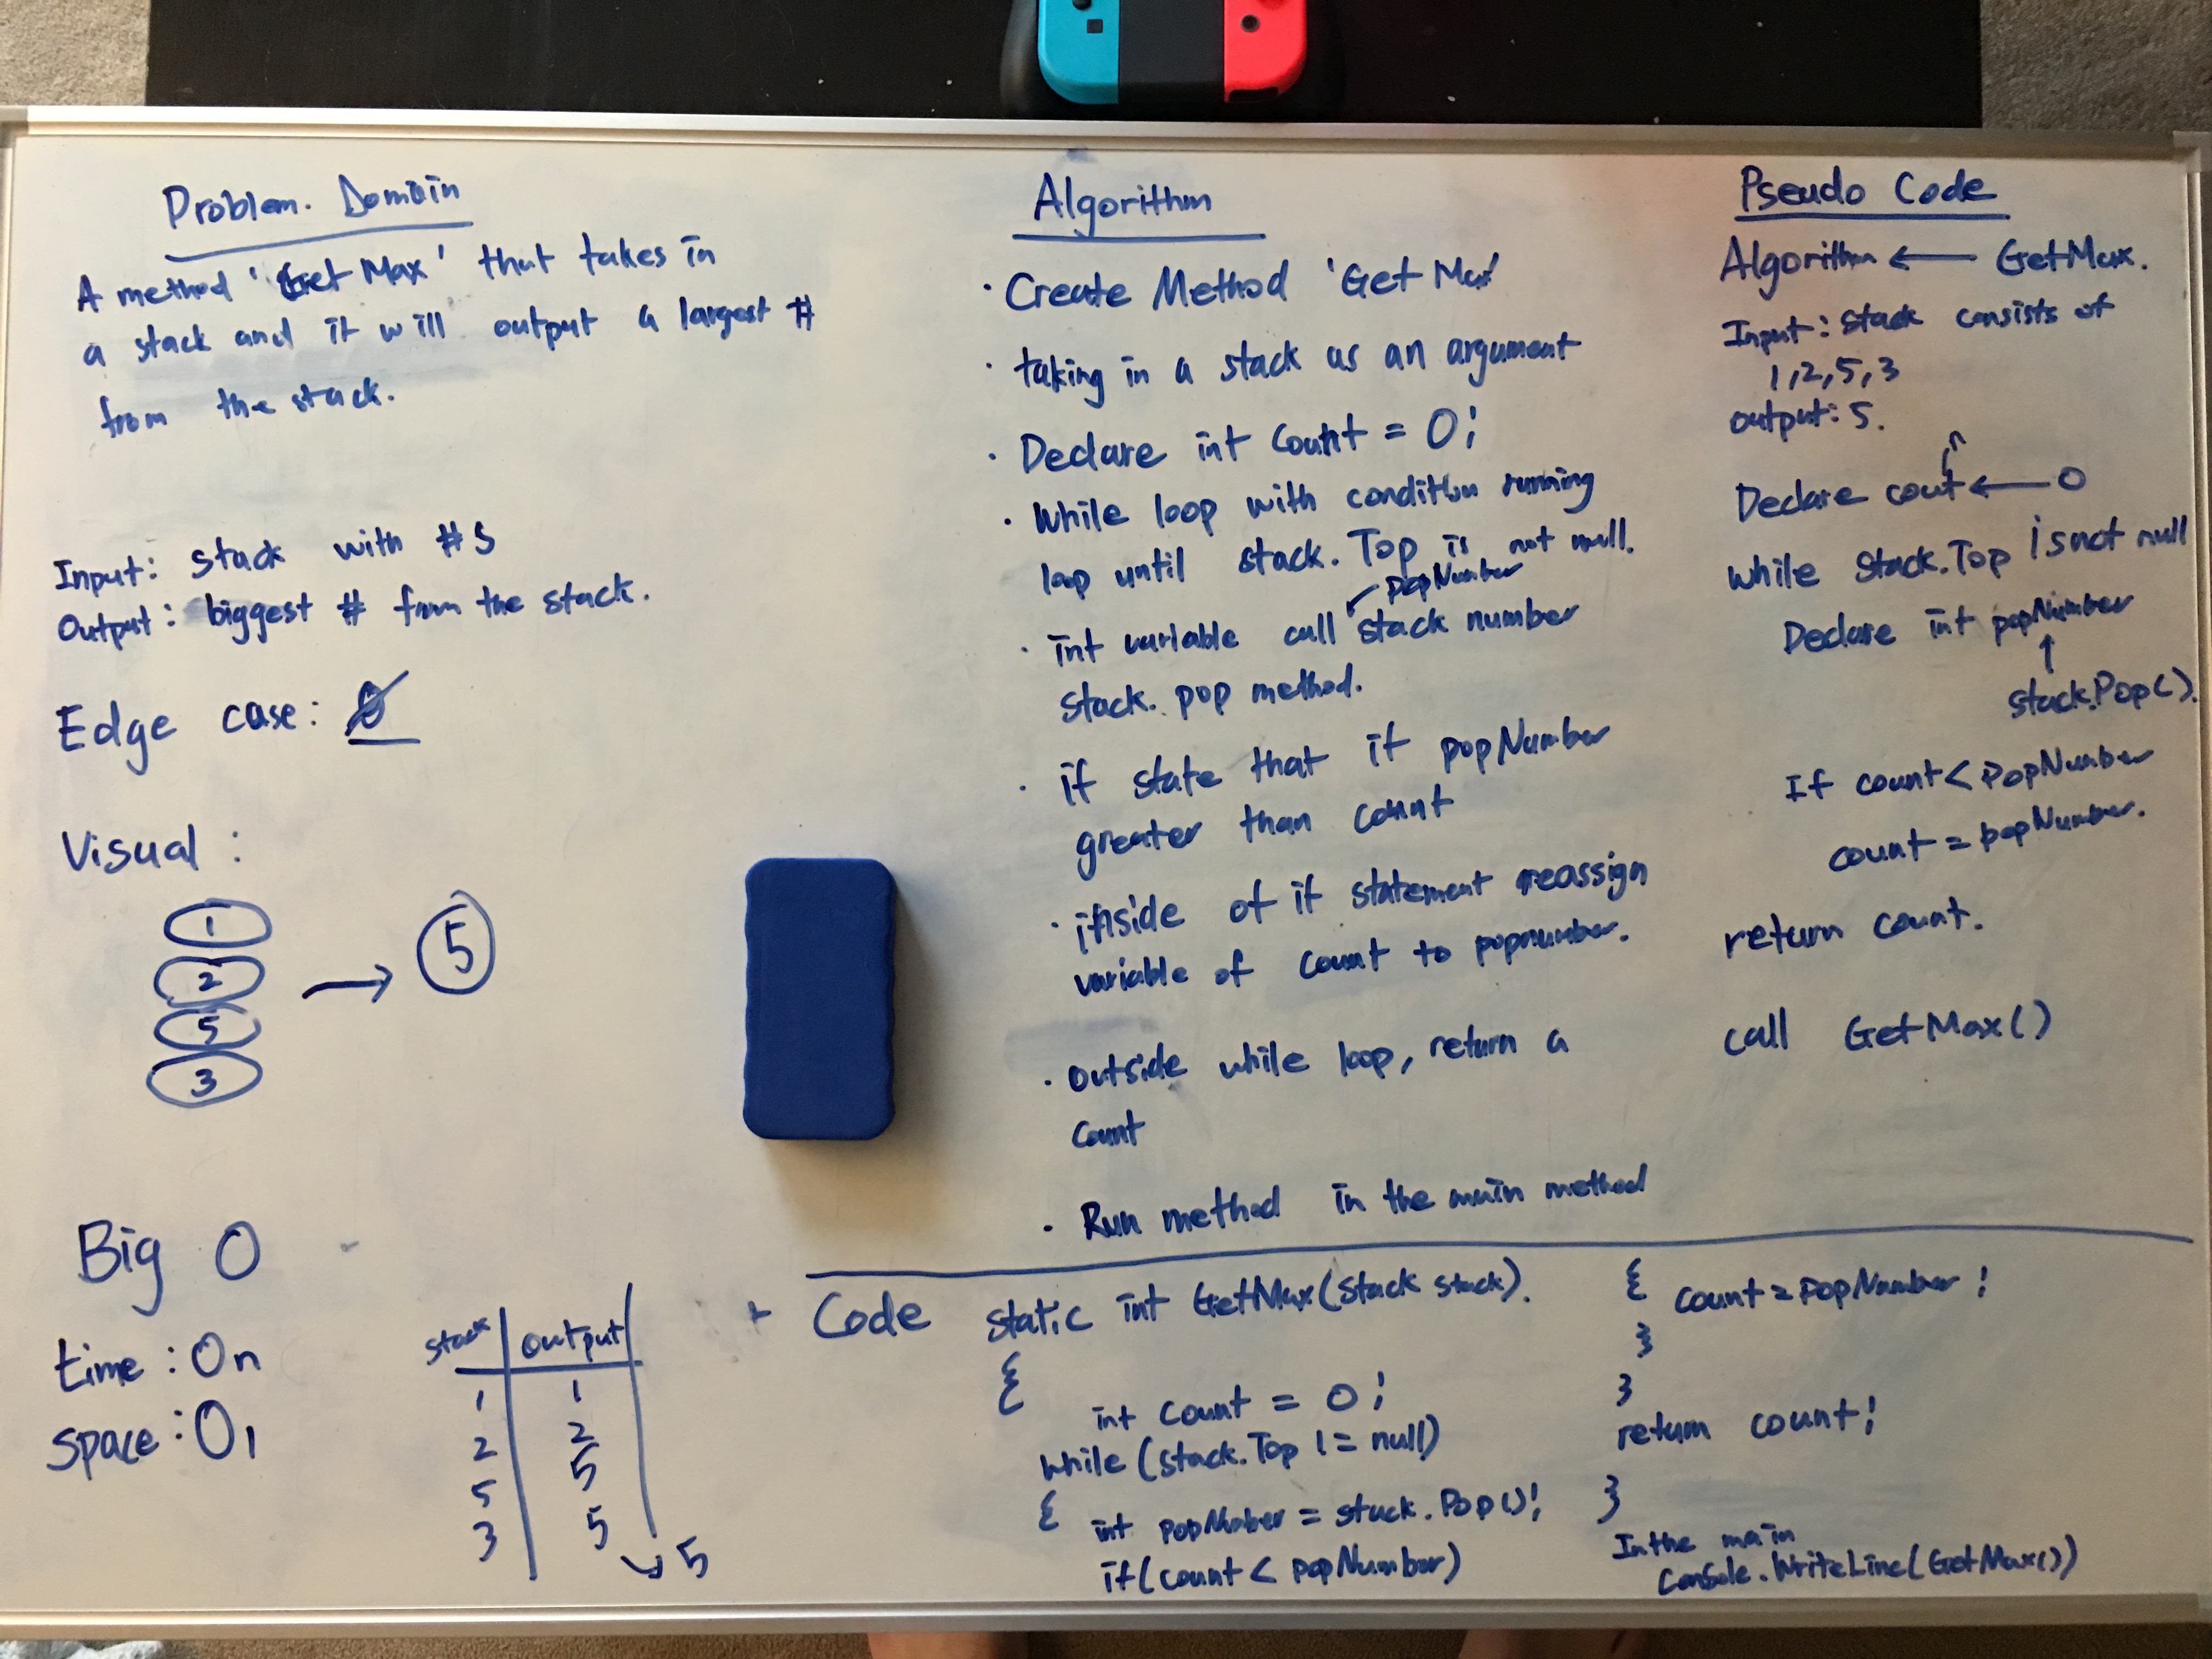 Problem. Domain
A method 'Get Max' that takes in
a stack and it will output a largest #
from the stack.
Input: stack with #s
Output: biggest # from the stack.
Edge case:
Visual:
1
2
5
3
→ 5
Big O
time: On
space: O1
stack | output
1 | 1
2 | 2
5 | 5
3 | 5
↘ 5
Algorithm
· Create Method 'Get Max'
· taking in a stack as an argument
· Declare int count = 0;
· While loop with condition running
loop until stack.Top is not null.
popNumber
· int variable call stack number
stack. pop method.
· if state that if popNumber
greater than count
· inside of if statement reassign
variable of count to popnumber.
· outside while loop, return a
count
· Run method in the main method
Pseudo Code
Algorithm ← GetMax.
Input: stack consists of
1,2,5,3
output: 5.
n
Declare cout ← 0
while Stack.Top is not null
Declare int popNumber
↑
stack.Pop().
If count < PopNumber
count = popNumber.
return count.
call GetMax()
Code static int GetMax(Stack stack).
{
int count = 0;
while (stack.Top != null)
{ int popNumber = stack.Pop();
if(count < popNumber)
{ count = PopNumber;
}
}
return count;
}
In the main
Console.WriteLine(GetMax())